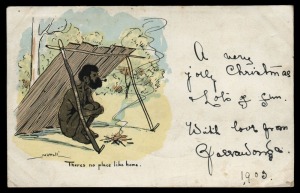 A very
jolly Christmas
& Lots of fun.
With love from
1903.
Theres no place like home.